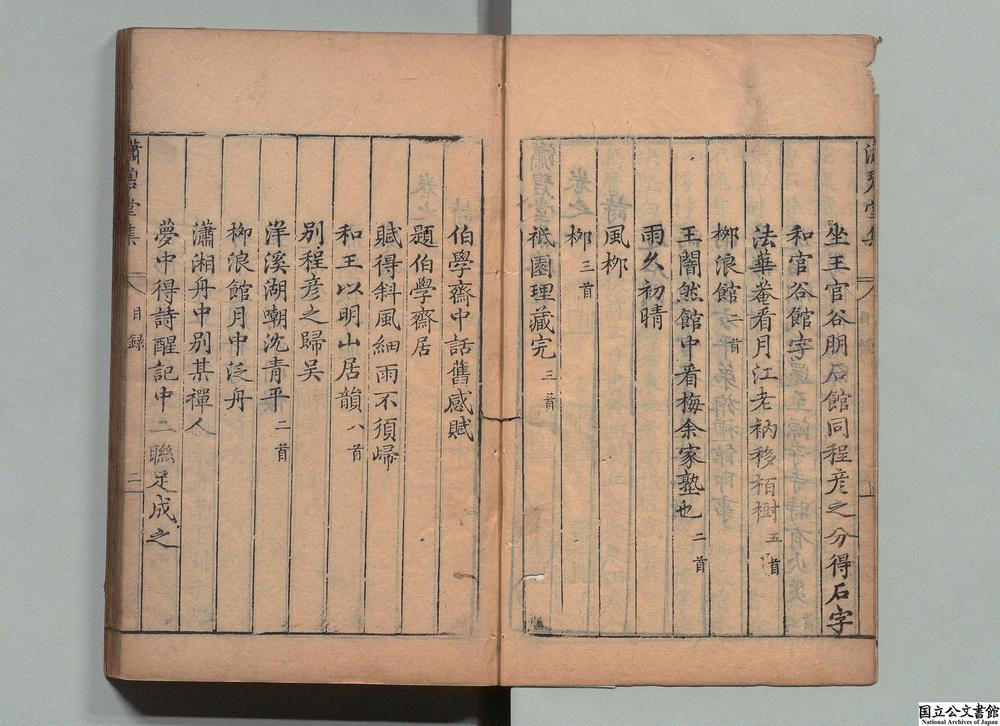 坐王官谷朋石館同程彦之分得石字
和官谷館字
法華菴看月江老衲移栢樹五首
栁浪館二首
王闇然館中看梅余家塾也二首
雨久初晴
風栁
栁三首
祇園理藏完三首
伯學齋中話舊感賦
題伯學齋居
賦得斜風細雨不須歸
和王以明山居韻八首
別程彦之歸吴
洋溪湖嘲沈青平二首
栁浪館月中泛舟
瀟湘舟中別某禪人
夢中得詩醒記中二聯足成之
瀟碧堂集
目録
二
国立公文書館
National Archives of Japan